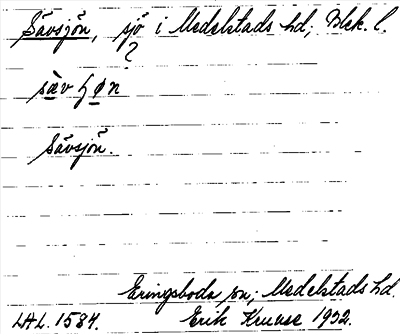 Sävsjön, sjö i Medelstads hd; Blek. l.
?
sævʃøn
Sävsjön.
Eringsboda sn; Medelstads hd.
LAL. 1584. Erik Kruuse 1932.